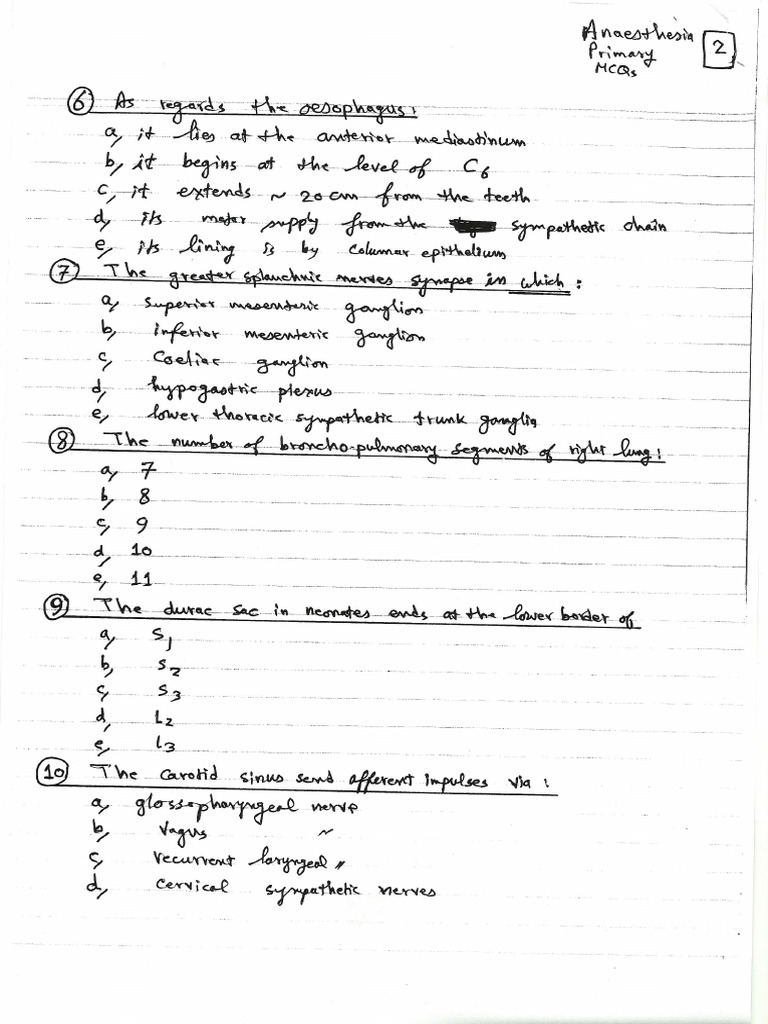 Anaesthesia
Primary
MCQs
2
6 As regards the oesophagus:
a, it lies at the anterior mediastinum
b, it begins at the level of C6
c, it extends ~ 20 cm from the teeth
d, its major supply from the sympathetic chain
e, its lining is by columar epithelium
7 The greater splanchnic nerves synapse in which:
a, superior mesenteric ganglion
b, inferior mesenteric ganglion
c, Coeliac ganglion
d, hypogastric plexus
e, lower thoracic sympathetic trunk ganglia
8 The number of broncho-pulmonary segments of right lung:
a, 7
b, 8
c, 9
d, 10
e, 11
9 The durac sac in neonates ends at the lower border of
a, S1
b, S2
c, S3
d, L2
e, L3
10 The carotid sinus send afferent impulses via:
a, glossopharyngeal nerve
b, vagus ~
c, recurrent laryngeal "
d, cervical sympathetic nerves